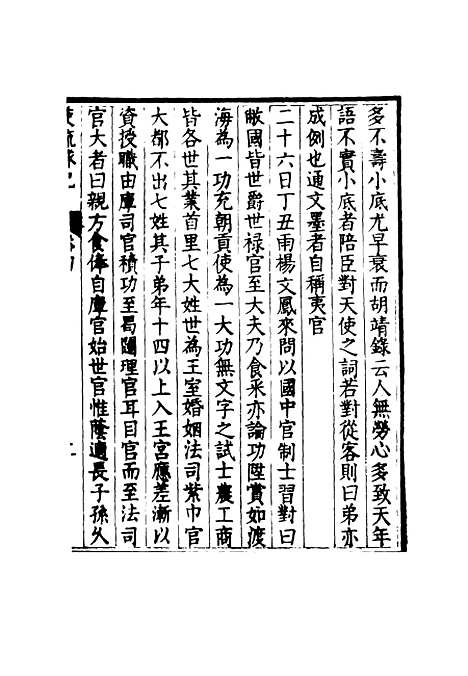 多不壽小底尤早衰而胡靖錄云人無勞心多致天年
語不實小底者陪臣對天使之詞若對從客則曰弟亦
成例也通文墨者自稱夷官
二十六日丁丑雨楊文鳳來問以國中官制士習對曰
敝國皆世爵世祿官至大夫乃食采亦論功陞賞如渡
海為一功充朝貢使為一大功無文字之試士農工商
皆各世其業首里七大姓世為王室婚姻法司紫巾官
大都不出七姓其子弟年十四以上入王宮應差漸以
資授職由庫司官積功至曷闥理官耳目官而至法司
官大者曰親方食俸自庫官始世官惟蔭適長子孫久